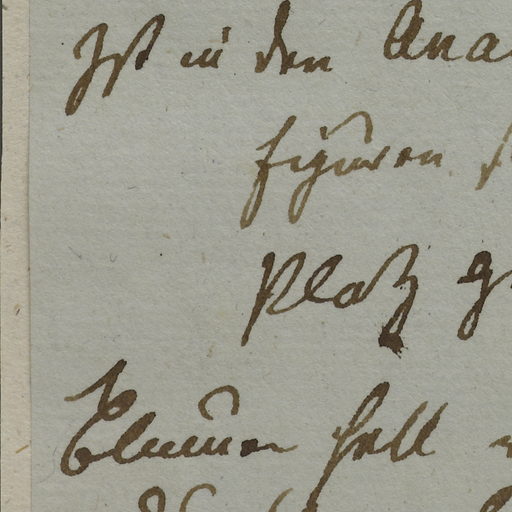 Ist in den Ana
figuren
Platz g
Blumen soll